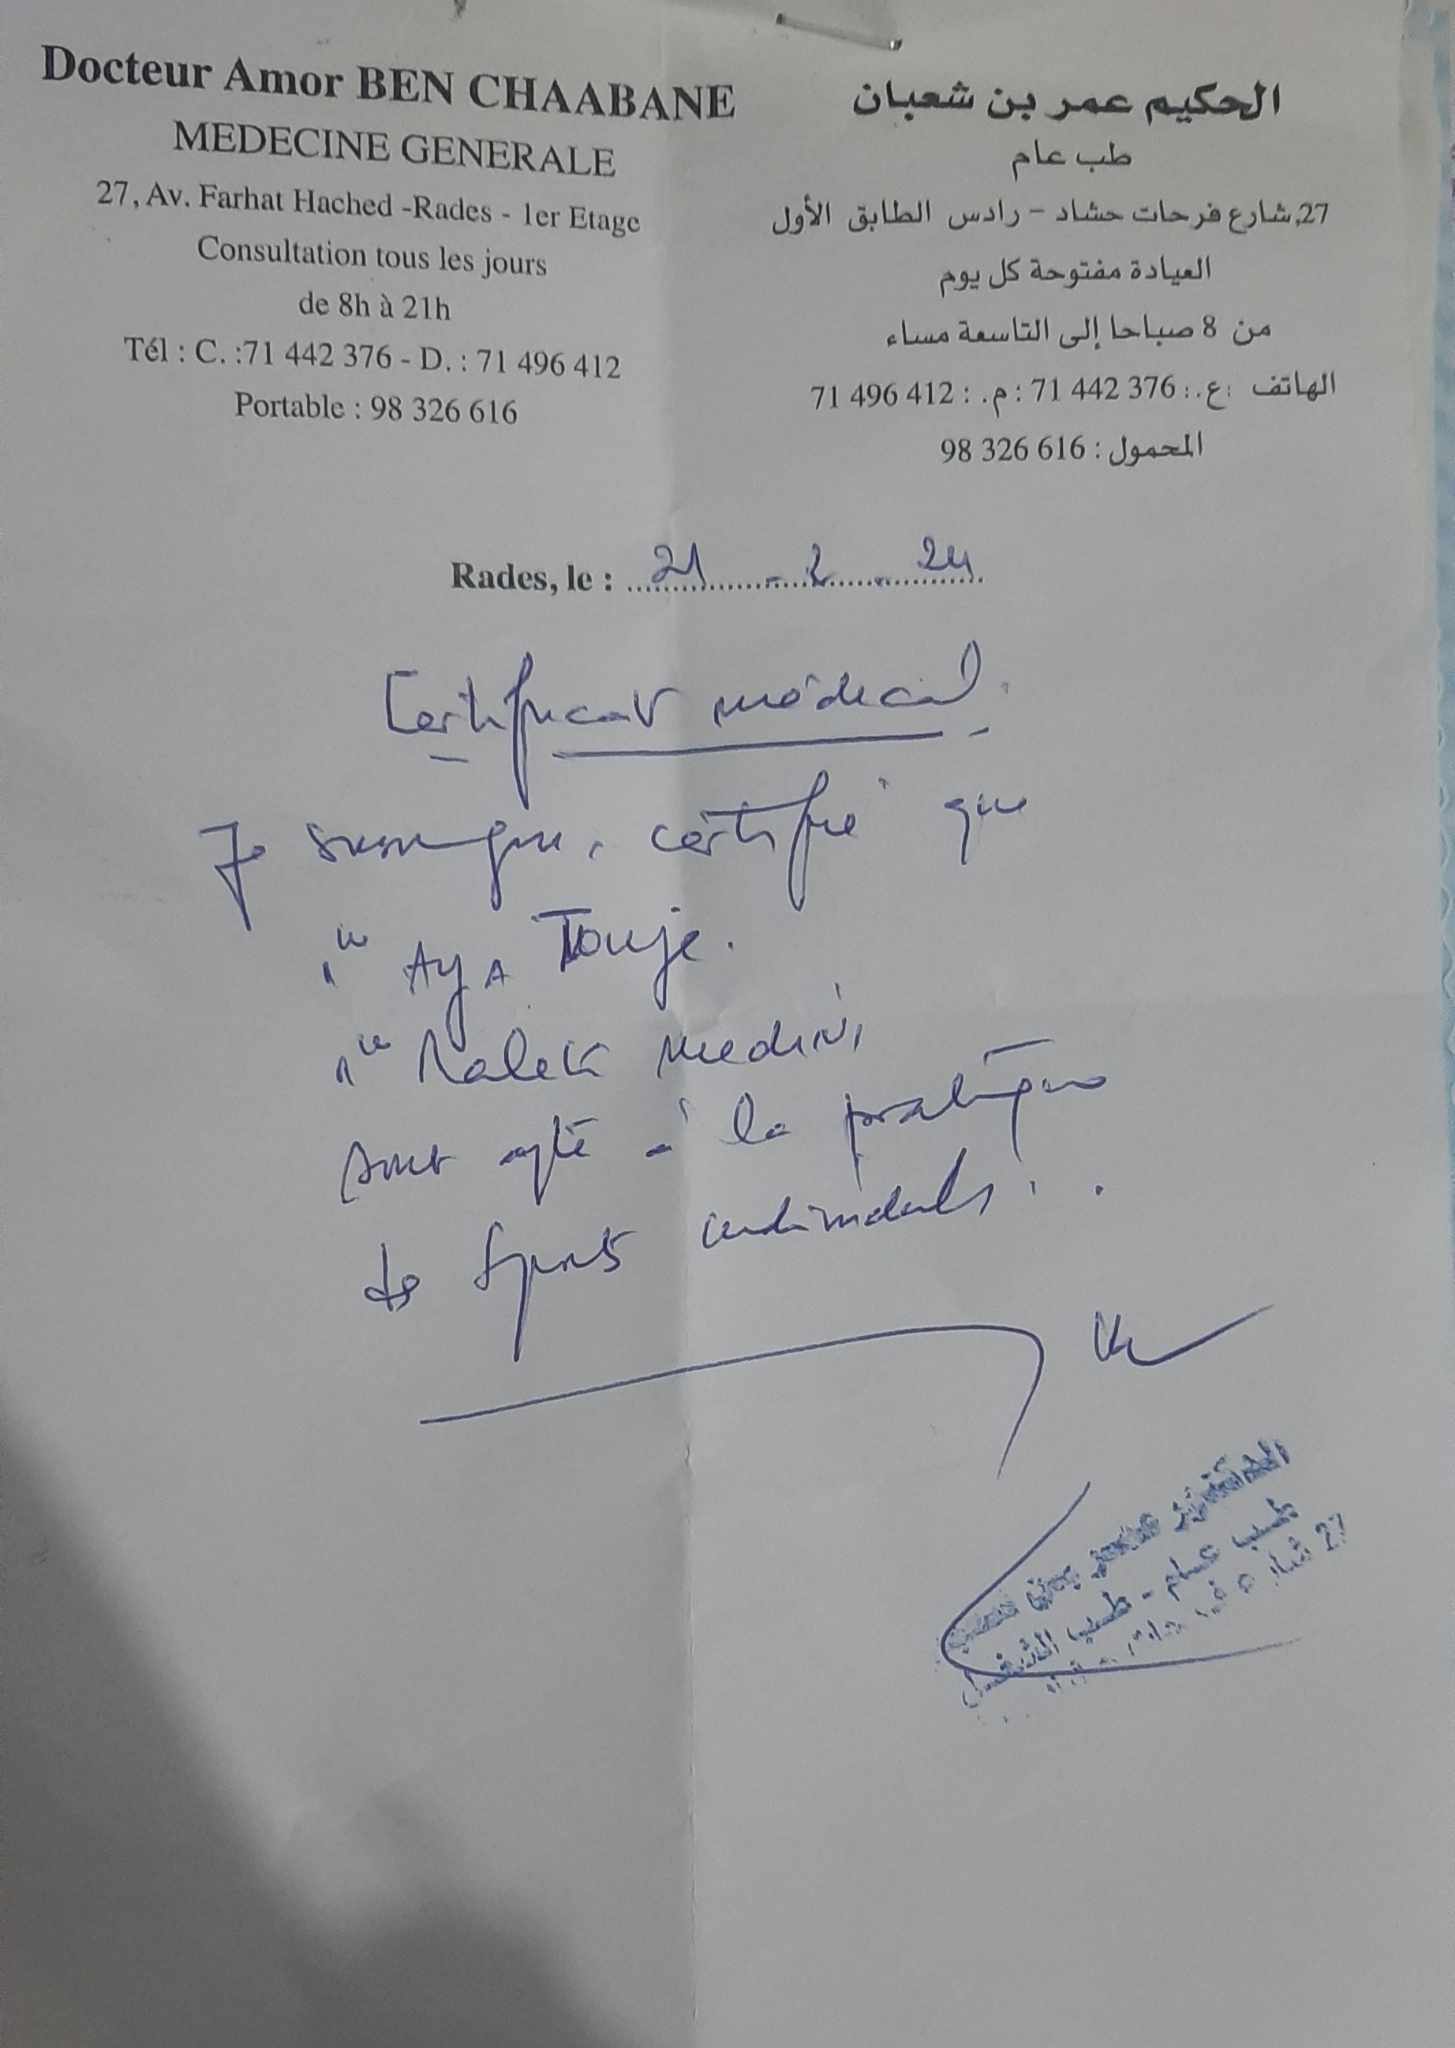 Docteur Amor BEN CHAABANE
MEDECINE GENERALE
27, Av. Farhat Hached -Rades - 1er Etage
Consultation tous les jours
de 8h à 21h
Tél : C. :71 442 376 - D. : 71 496 412
Portable : 98 326 616
الحكيم عمر بن شعبان
طب عام
27,شارع فرحات حشاد – رادس الطابق الأول
العيادة مفتوحة كل يوم
من 8 صباحا إلى التاسعة مساء
الهاتف :ع.: 376 442 71 : م. : 412 496 71
المحمول : 616 326 98
Rades, le : 21 - 2 - 24
Certificat médical
Je soussigné, certifie que
Aya Touje
Malek Medini
sont apte à la pratique
de Sports
طب عام - طب الشغل
27 شارع